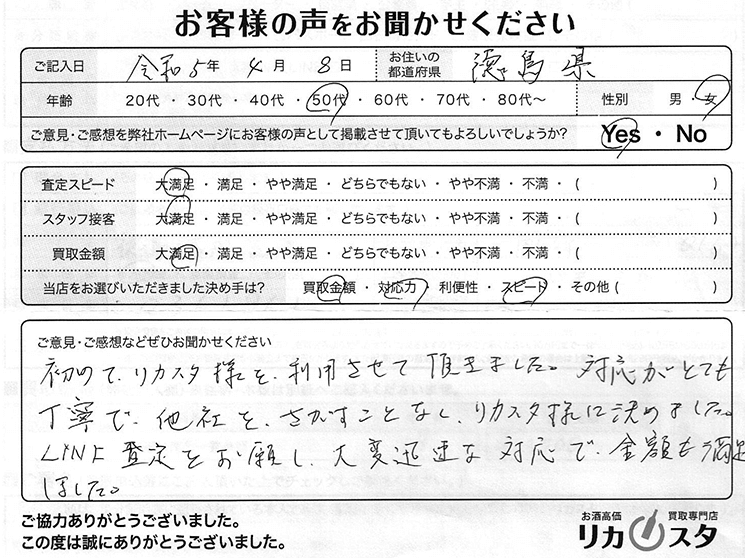 お客様の声をお聞かせください
ご記入日 令和5年 4月 8日 お住いの都道府県 徳島県
年齢 20代・30代・40代・50代・60代・70代・80代〜 性別 男・女
ご意見・ご感想を弊社ホームページにお客様の声として掲載させて頂いてもよろしいでしょうか? Yes・No
査定スピード 大満足・満足・やや満足・どちらでもない・やや不満・不満・( )
スタッフ接客 大満足・満足・やや満足・どちらでもない・やや不満・不満・( )
買取金額 大満足・満足・やや満足・どちらでもない・やや不満・不満・( )
当店をお選びいただきました決め手は? 買取金額・対応力・利便性・スピード・その他( )
ご意見・ご感想などぜひお聞かせください
初めて、リカスタ様を、利用させて頂きました。対応がとても
丁寧で、他社を、さがすことなく、リカスタ様に決めました。
LINE査定をお願し、大変迅速な対応で、金額も満足
しました。
ご協力ありがとうございました。
この度は誠にありがとうございました。
お酒高価 買取専門店
リカスタ